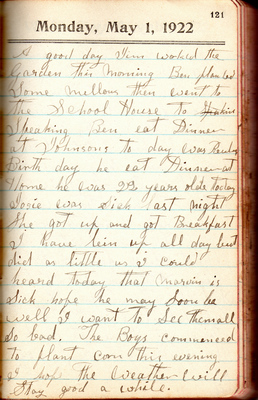 121
Monday, May 1, 1922
A good day Jim worked the
Garden this morning Ben planted
Some mellons then went to
the School House to
Speaking Ben eat Dinner
at Johnsons to day was
Birth day he eat Dinner at
Home he was 22 years olde today
was Sick last night
She got up and got Breakfast
I have bein up all day but
did as little as I could
heard today that marvin is
Sick hope he may Soon be
well I want to See them all
So bad. The Boys commenced
to plant corn this evening
I hop the weather will
Stay good a while.